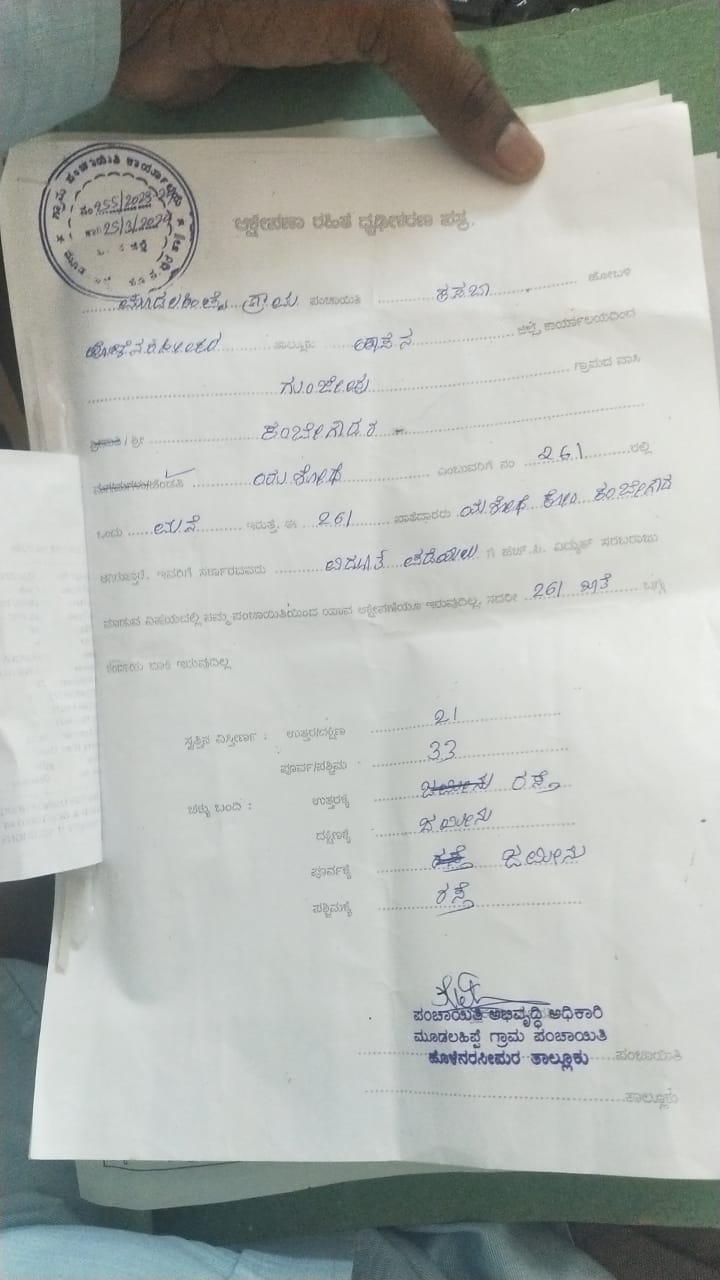 ಗ್ರಾಮ ಪಂಚಾಯಿತಿ ಕಾರ್ಯಾಲಯ
ನಂ 255/2023-24
ದಿ: 25/3/2024
ಆಕ್ಷೇಪಣಾ ರಹಿತ ಧೃಢೀಕರಣ ಪತ್ರ
ಮೂಡಲಹಿಪ್ಪೆ ಗ್ರಾಮ ಪಂಚಾಯಿತಿ ಕಸಬಾ ಹೋಬಳಿ
ಹೊಳೆನರಸೀಪುರ ತಾಲ್ಲೂಕು ಹಾಸನ ಜಿಲ್ಲೆ ಕಾರ್ಯಾಲಯದಿಂದ
ಗುಂಜೇವು ಗ್ರಾಮದ ವಾಸಿ
ಶ್ರೀಮತಿ / ಶ್ರೀ ಕೆಂಚೇಗೌಡರ
ಮಗ/ಮಗಳು/ಹೆಂಡತಿ ಯಶೋಧ ಎಂಬುವರಿಗೆ ನಂ 261 ರಲ್ಲಿ
ಒಂದು ಮನೆ ಇರುತ್ತೆ. ಈ 261 ಖಾತೆದ್ದಾರರು ಯಶೋಧ ಕೋಂ ಕೆಂಚೇಗೌಡ
ಆಗಿರುತ್ತಾರೆ. ಇವರಿಗೆ ಸರ್ಕಾರದವರು ವಿದ್ಯುತ್ ಪಡೆಯಲು ಗೆ ಹೆಚ್.ಪಿ. ವಿದ್ಯುತ್ ಸರಬರಾಜು
ಮಾಡುವ ವಿಷಯದಲ್ಲಿ ನಮ್ಮ ಪಂಚಾಯಿತಿಯಿಂದ ಯಾವ ಆಕ್ಷೇಪಣೆಯೂ ಇರುವುದಿಲ್ಲ, ಸದರೀ 261 ಖಾತೆ ಬಗ್ಗೆ
ಕಂದಾಯ ಬಾಕಿ ಇರುವುದಿಲ್ಲ
ಸ್ವತ್ತಿನ ವಿಸ್ತೀರ್ಣ : ಉತ್ತರ/ದಕ್ಷಿಣ 21
ಪೂರ್ವ/ಪಶ್ಚಿಮ 33
ಚಕ್ಕು ಬಂದಿ : ಉತ್ತರಕ್ಕೆ ಜಮೀನು ರಸ್ತೆ
ದಕ್ಷಿಣಕ್ಕೆ ಜಮೀನು
ಪೂರ್ವಕ್ಕೆ ರಸ್ತೆ ಜಮೀನು
ಪಶ್ಚಿಮಕ್ಕೆ ರಸ್ತೆ
ಪಂಚಾಯಿತಿ ಅಭಿವೃದ್ಧಿ ಅಧಿಕಾರಿ
ಮೂಡಲಹಿಪ್ಪೆ ಗ್ರಾಮ ಪಂಚಾಯಿತಿ
ಹೊಳೆನರಸೀಪುರ ತಾಲ್ಲೂಕು ಪಂಚಾಯಿತಿ
ತಾಲ್ಲೂಕು